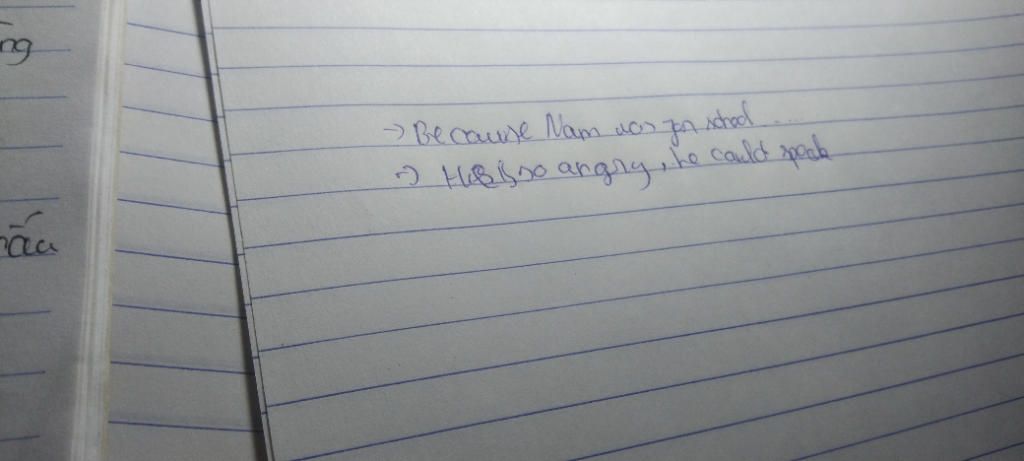 ng
ấu
→ Because Nam was for school ....
→ He is so angry, he could speak